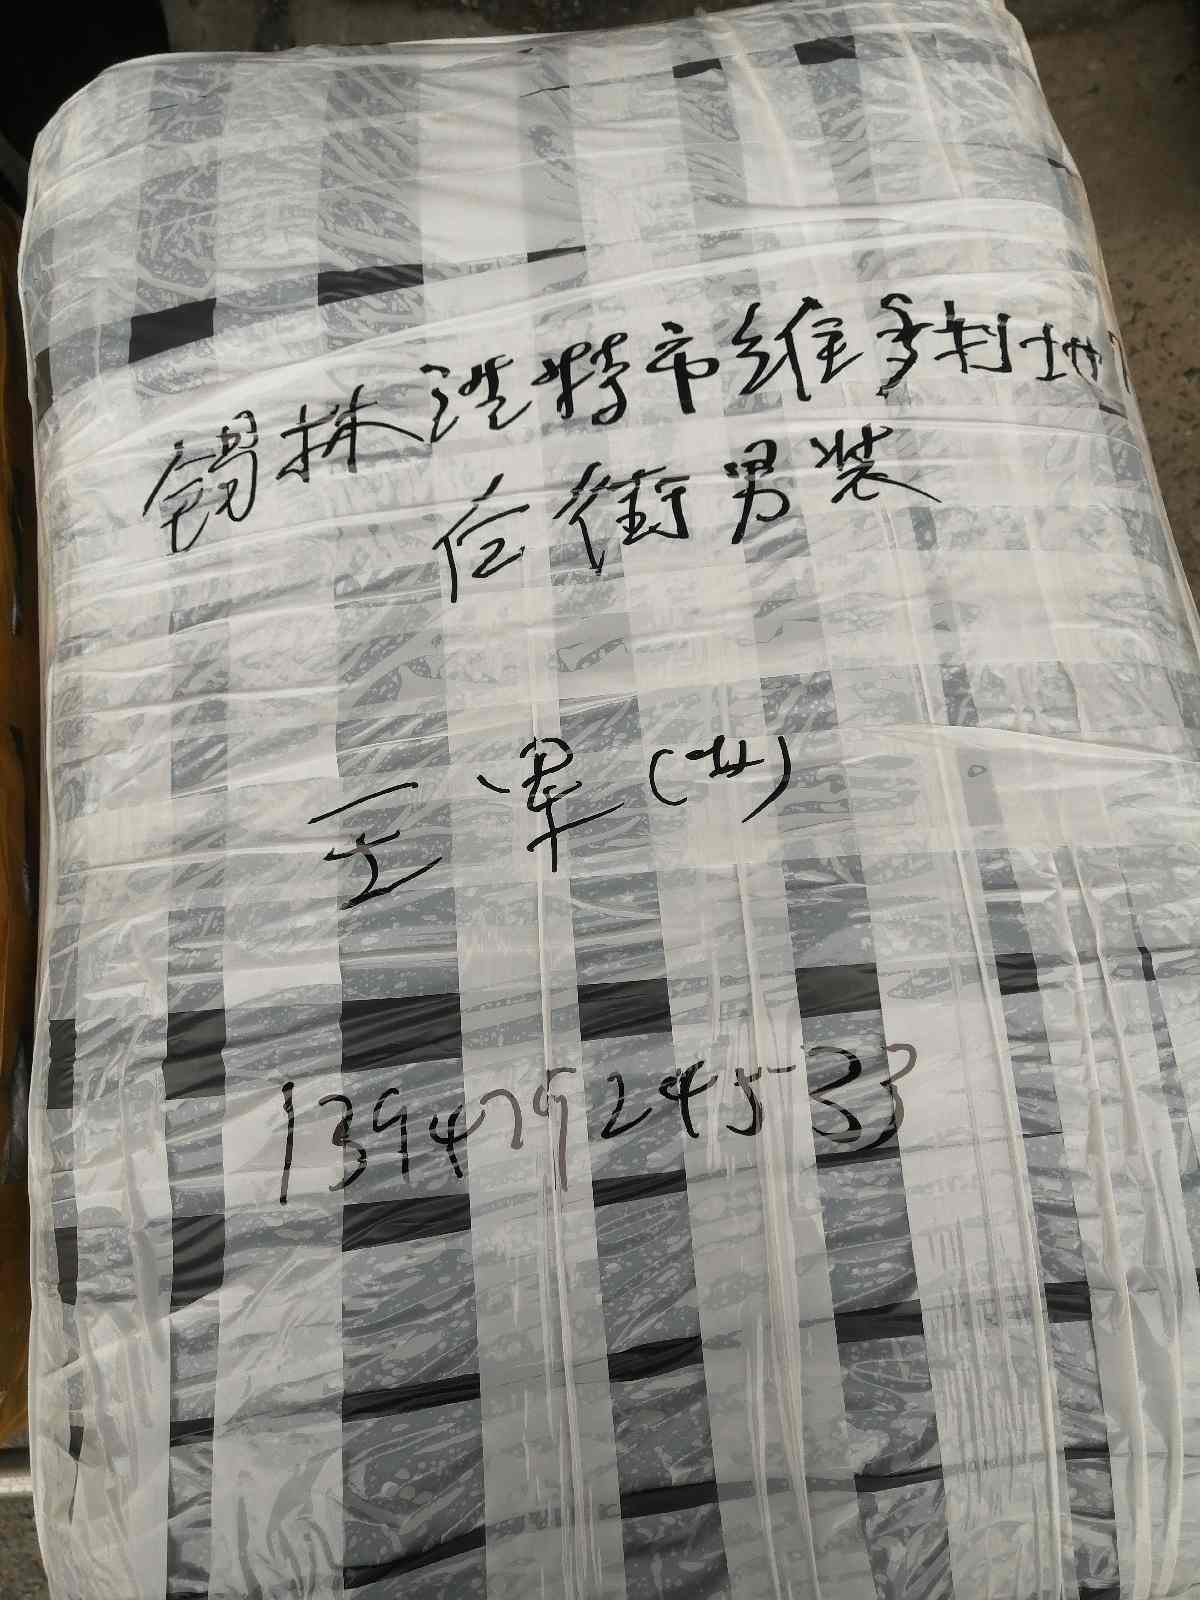 锡林浩特市维多利地下
后街男装
王军(廿)
13947924533